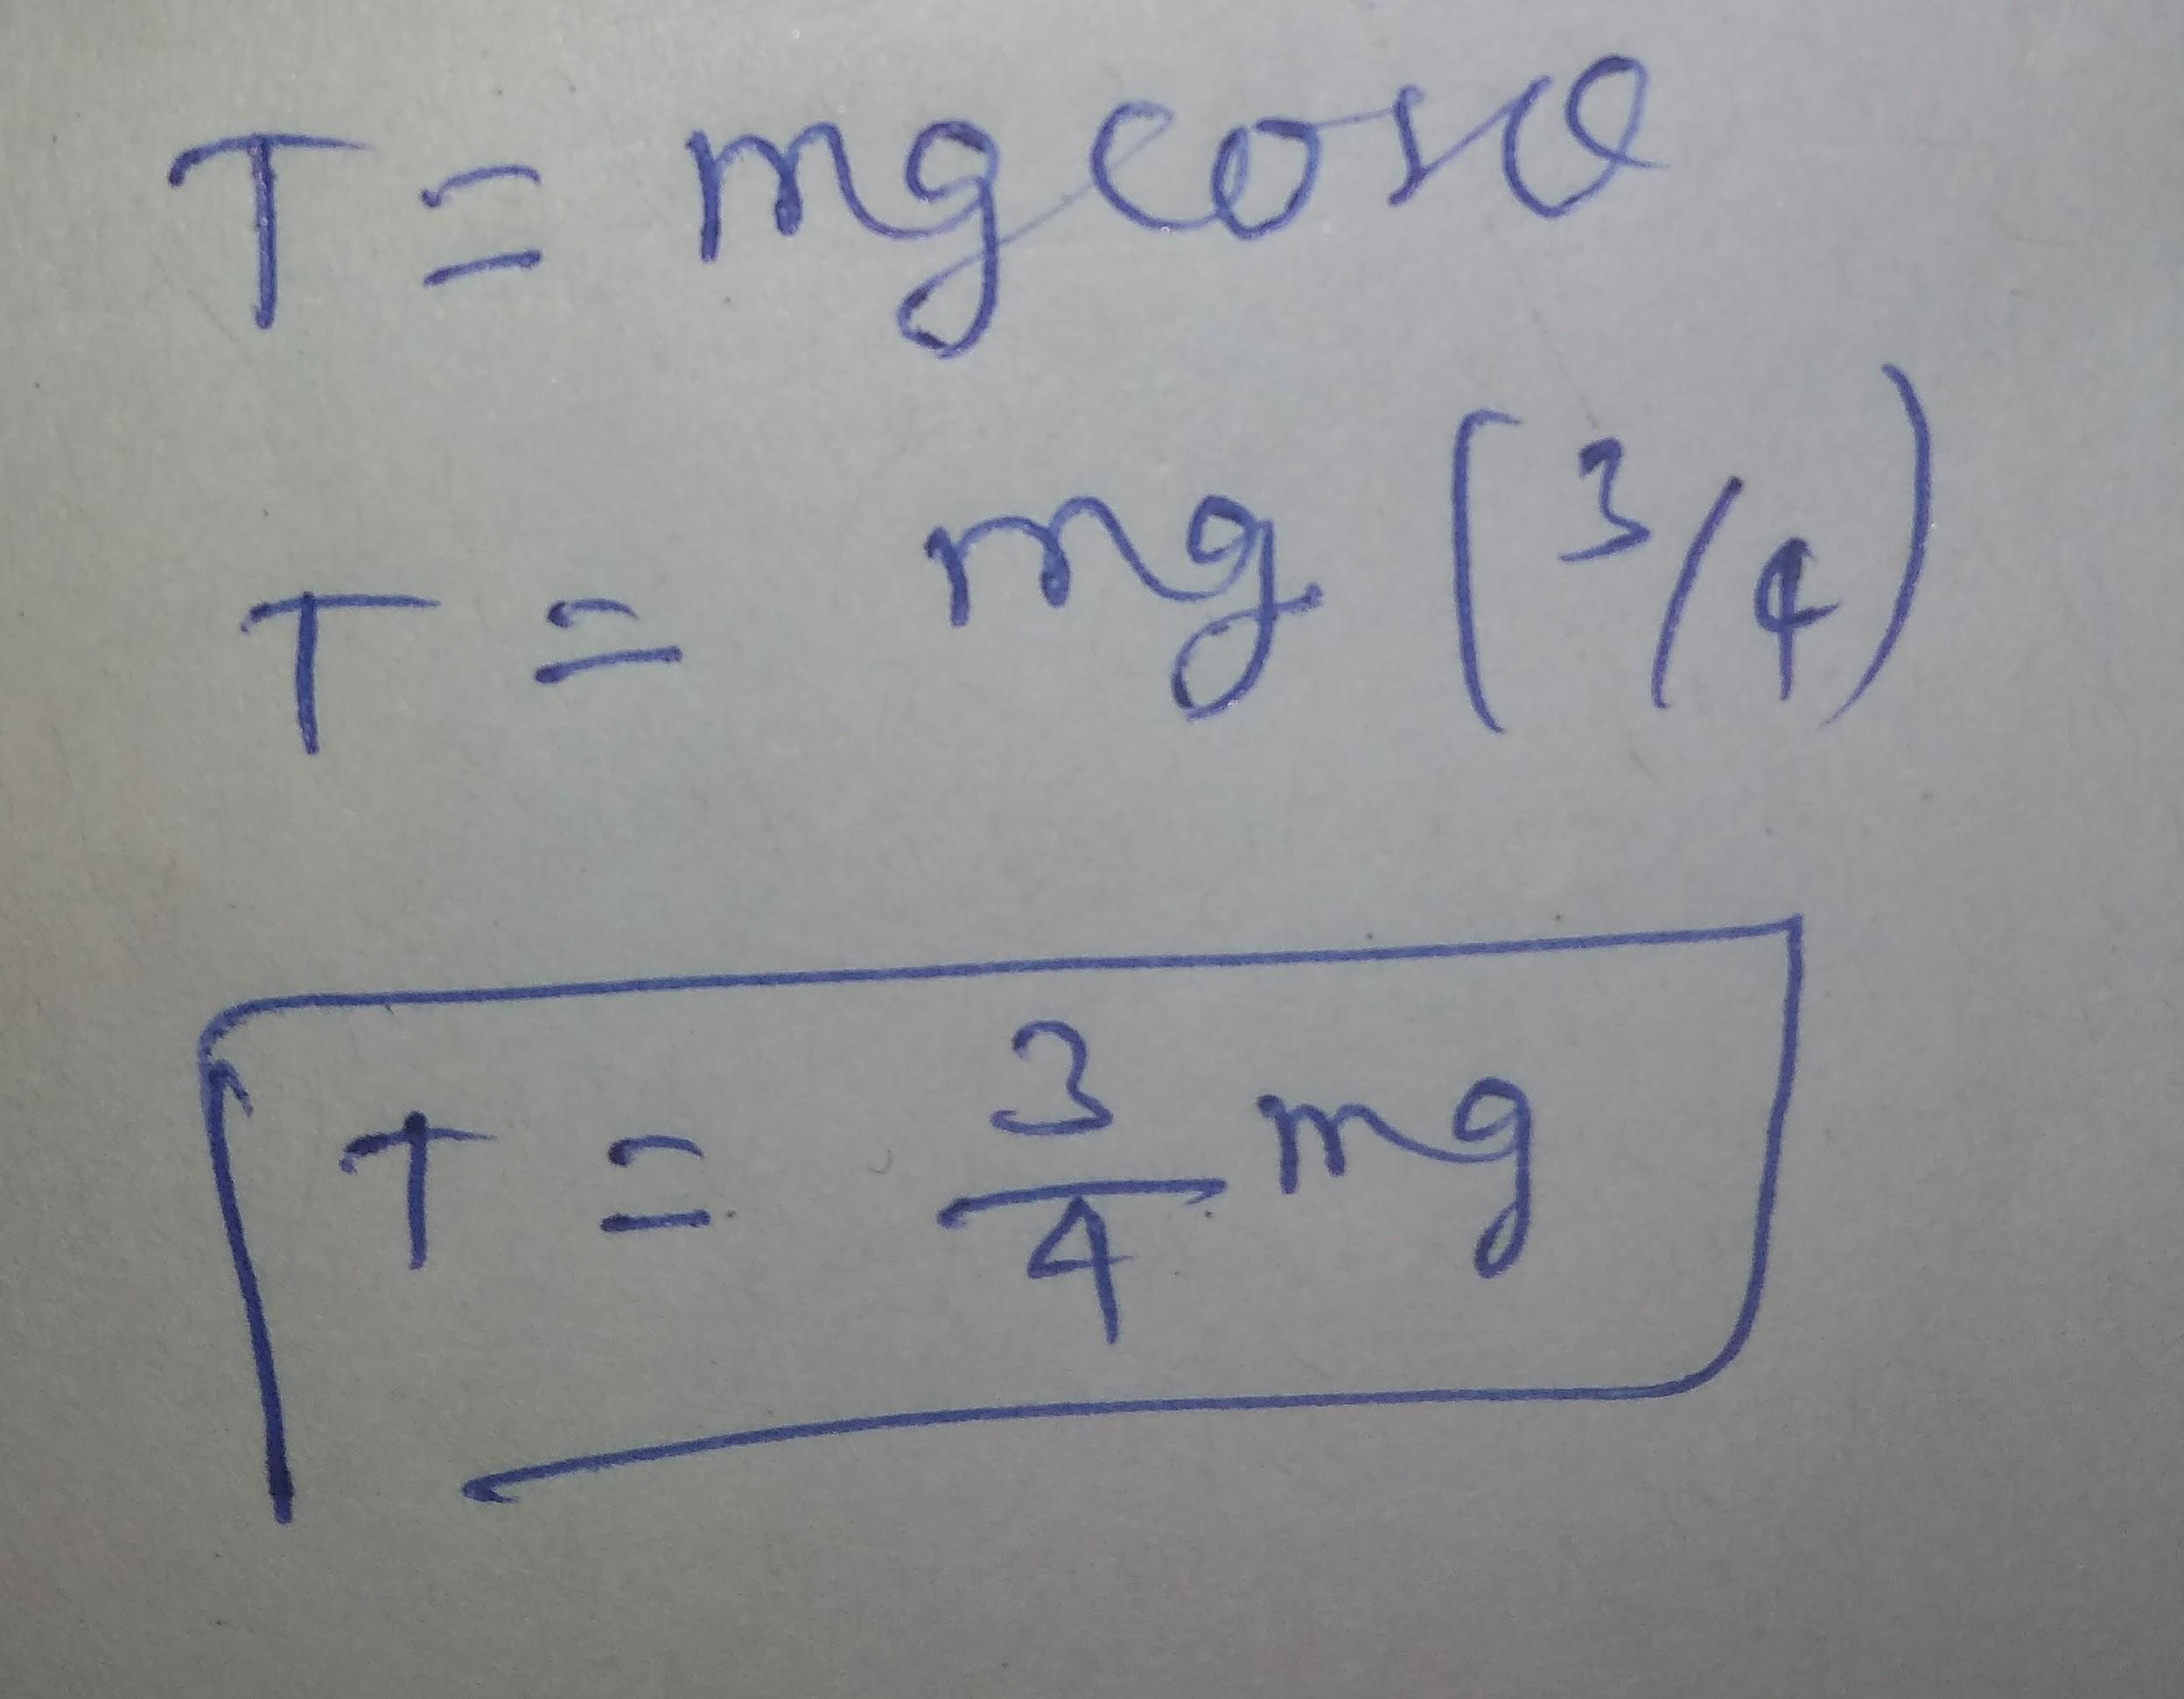 T = mg cosθ
T = mg (3/4)
T = 3/4 mg